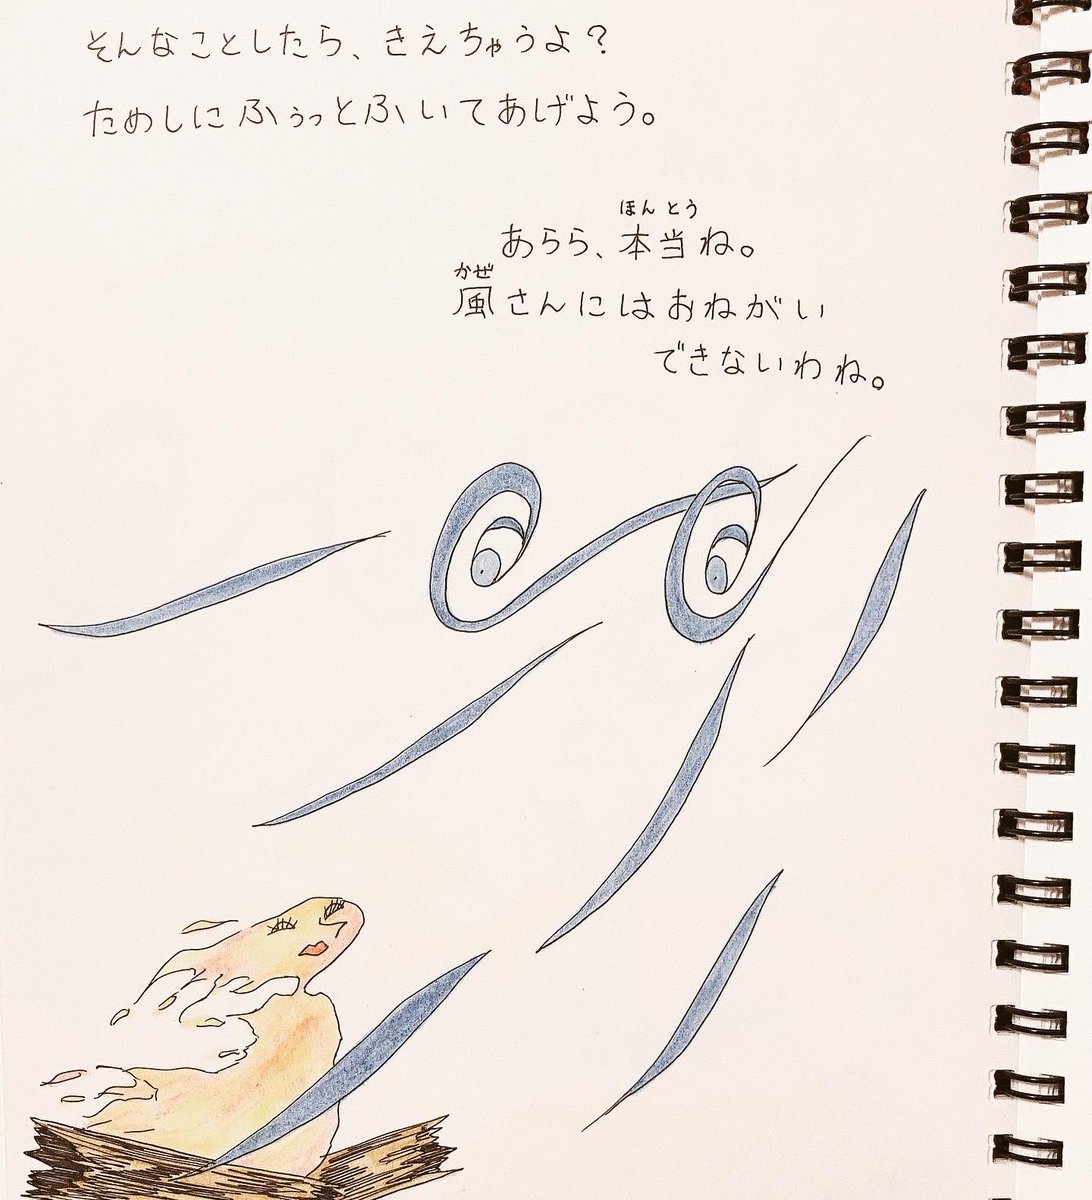 そんなことしたら、きえちゃうよ？
ためしにふぅっとふいてあげよう。
ほんとう
あらら、本当ね。
かぜ
風さんにはおねがい
できないわね。